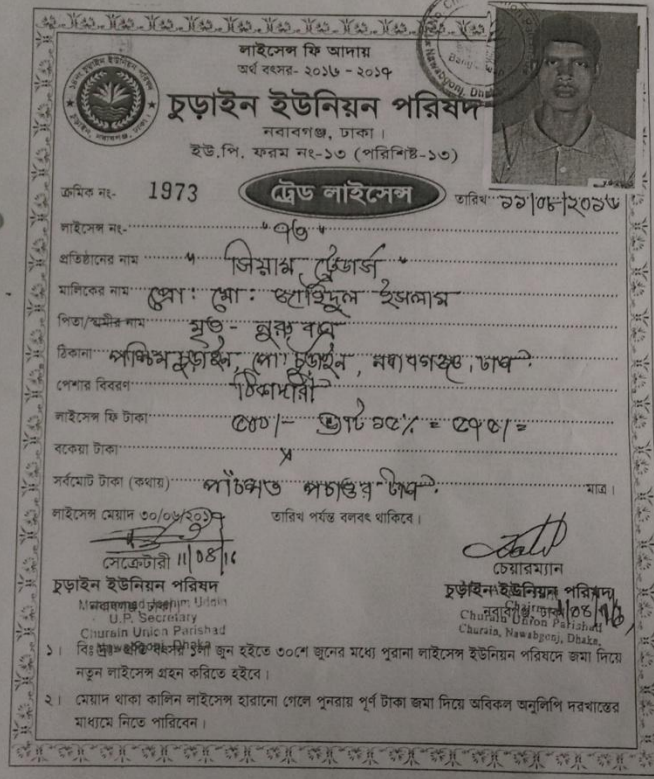 লাইসেন্স ফি আদায়
অর্থ বৎসর- ২০১৬ - ২০১৭
চুড়াইন ইউনিয়ন পরিষদ
নবাবগঞ্জ, ঢাকা।
ইউ.পি. ফরম নং-১৩ (পরিশিষ্ট-১৩)
ক্রমিক নং- 1973 ট্রেড লাইসেন্স তারিখ ১১/০৮/২০১৬
লাইসেন্স নং- "৭৬"
প্রতিষ্ঠানের নাম " সিয়াম ট্রেডার্স "
মালিকের নাম প্রো: মো: জাহিদুল ইসলাম
পিতা/স্বামীর নাম মৃত -
ঠিকানা পশ্চিম চুড়াইন, পো: চুড়াইন, নবাবগঞ্জ, ঢাকা
পেশার বিবরণ ঠিকাদারী
লাইসেন্স ফি টাকা ৫০০/- ভ্যাট ১৫% = ৫৭৫/=
বকেয়া টাকা x
সর্বমোট টাকা (কথায়) পাঁচশত পচাত্তর টাকা মাত্র।
লাইসেন্স মেয়াদ ৩০/০৬/২০১৭ তারিখ পর্যন্ত বলবৎ থাকিবে।
সেক্রেটারী 11/08/16
চুড়াইন ইউনিয়ন পরিষদ
U.P. Secretary
Churain Union Parishad
চেয়ারম্যান
চুড়াইন ইউনিয়ন পরিষদ
নবাবগঞ্জ
Churain Union Parishad
Churain, Nawabgonj, Dhaka.
১। জুন হইতে ৩০শে জুনের মধ্যে পুরানা লাইসেন্স ইউনিয়ন পরিষদে জমা দিয়ে
নতুন লাইসেন্স গ্রহন করিতে হইবে।
২। মেয়াদ থাকা কালিন লাইসেন্স হারানো গেলে পুনরায় পূর্ণ টাকা জমা দিয়ে অবিকল অনুলিপি দরখাস্তের
মাধ্যমে নিতে পারিবেন।